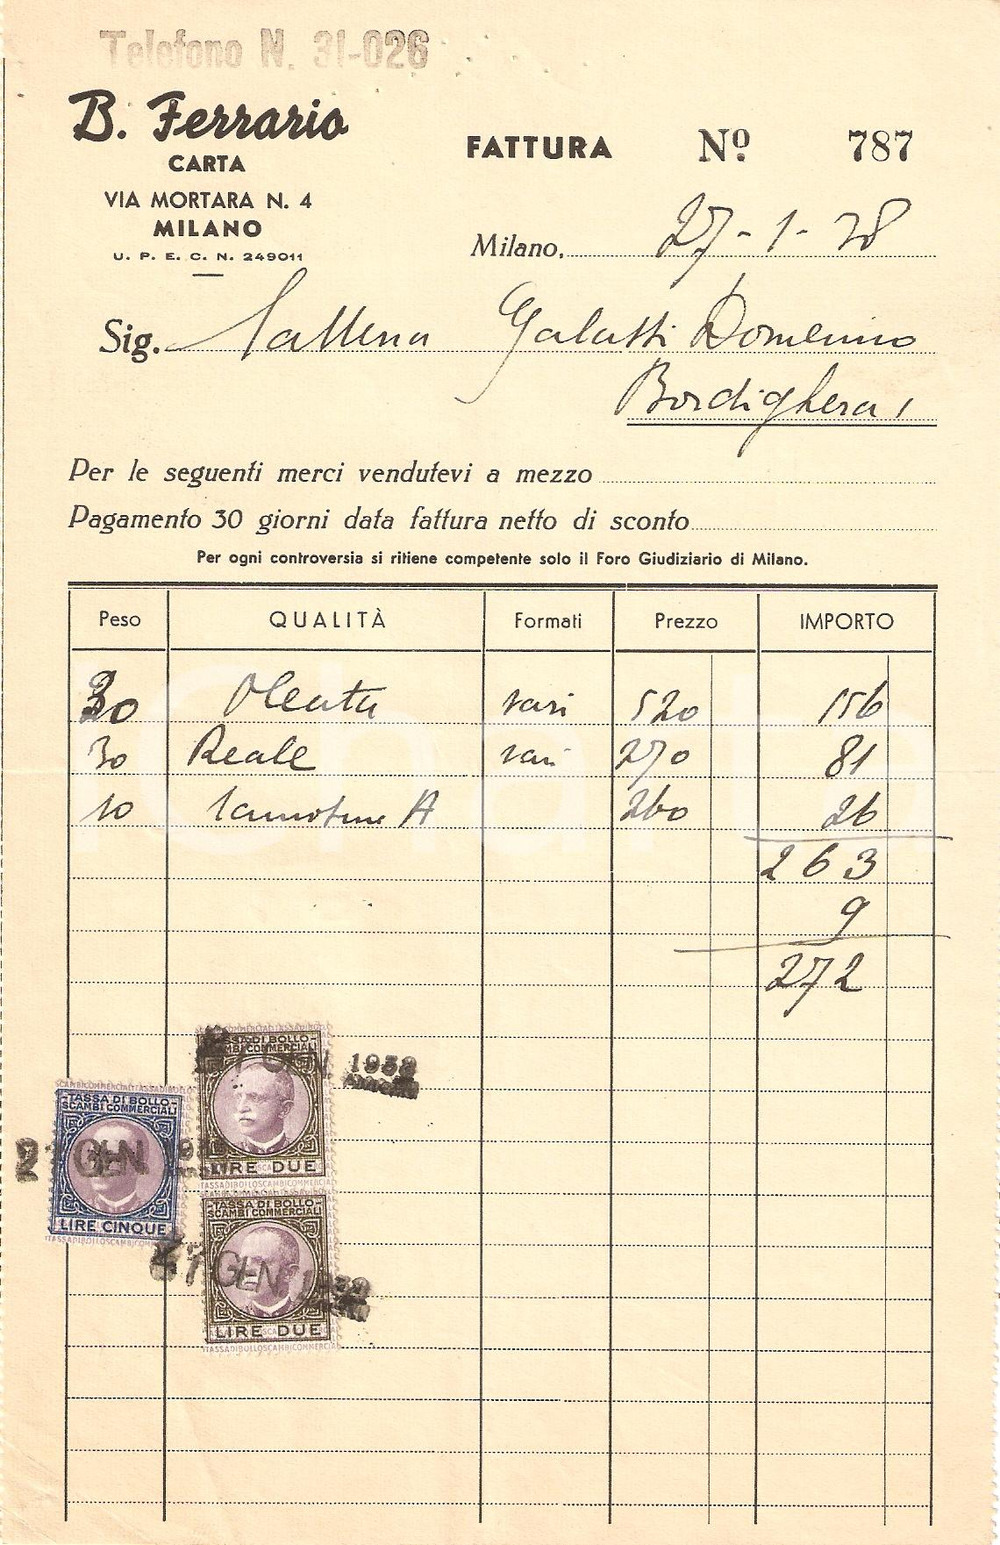 Telefono N. 31-026
B. Ferrario
CARTA
VIA MORTARA N. 4
MILANO
U. P. E. C. N. 249011
FATTURA Nº 787
Milano, 27-1-38
Sig. Galatti Domenico
Bordighera
Per le seguenti merci vendutevi a mezzo
Pagamento 30 giorni data fattura netto di sconto
Per ogni controversia si ritiene competente solo il Foro Giudiziario di Milano.
Peso QUALITÀ Formati Prezzo IMPORTO
30 Oleata vari 520 156
30 Reale vari 270 81
10 A 260 26
263
9
272
TASSA DI BOLLO
SCAMBI COMMERCIALI
LIRE DUE
GEN 1938
TASSA DI BOLLO
SCAMBI COMMERCIALI
LIRE CINQUE
GEN
TASSA DI BOLLO
SCAMBI COMMERCIALI
LIRE DUE
GEN